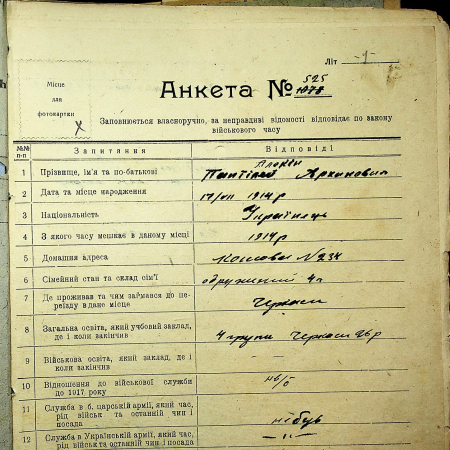 Літ
Місце
для
фотокартки
Анкета №
525
1078
Заповнюється власноручно, за неправдиві відомості відповідає по закону
військового часу
№№ п-п Запитання Відповіді
1 Прізвище, ім'я та по-батькові
2 Дата та місце народження 17/VII 1914 р
3 Національність Українець
4 З якого часу мешкає в даному місці 1914 р
5 Домашня адреса № 234
6 Сімейний стан та склад сім'ї одружений
7 Де проживав та чим займався до переїзду в дане місце Черкаси
8 Загальна освіта, який учбовий заклад, де і коли закінчив 4 групи Черкаси 26 р
9 Військова освіта, який заклад, де і коли закінчив
10 Відношення до військової служби до 1917 року
11 Служба в б. царській армії, який час, рід військ та останній чин і посада не був
12 Служба в Українській армії, який час, рід військ та останній чин і посада -"-